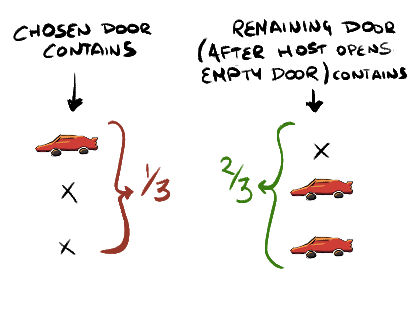 CHOSEN DOOR
CONTAINS
REMAINING DOOR
(AFTER HOST OPENS
EMPTY DOOR) CONTAINS
X
X
1/3
2/3
X